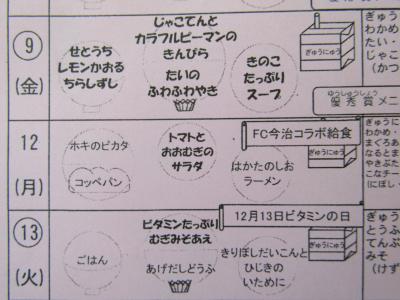 ⑨
(金)
せとうち
レモンかおる
ちらしずし
じゃこてんと
カラフルピーマンの
きんぴら
たいの
ふわふわやき
きのこ
たっぷり
スープ
ぎゅうにゅう
ぎゅう
わかめ
たい・
じゃこ
(かつ
ゆうしゅうしょう
優秀賞メニ
12
(月)
ホキのピカタ
コッペパン
トマトと
おおむぎの
サラダ
FC今治コラボ給食
はかたのしお
ラーメン
ぎゅうにゅう
ぎゅう
わかめ・
まぐろあ
なるとま
やきぶた
こなチー
(にぼし・
⑬
(火)
ごはん
ビタミンたっぷり
むぎみそあえ
あげだしどうふ
12月13日ビタミンの日
きりぼしだいこんと
ひじきの
いために
ぎゅうにゅう
ぎゅう
とうふ
てんぷ
みそ
(けず